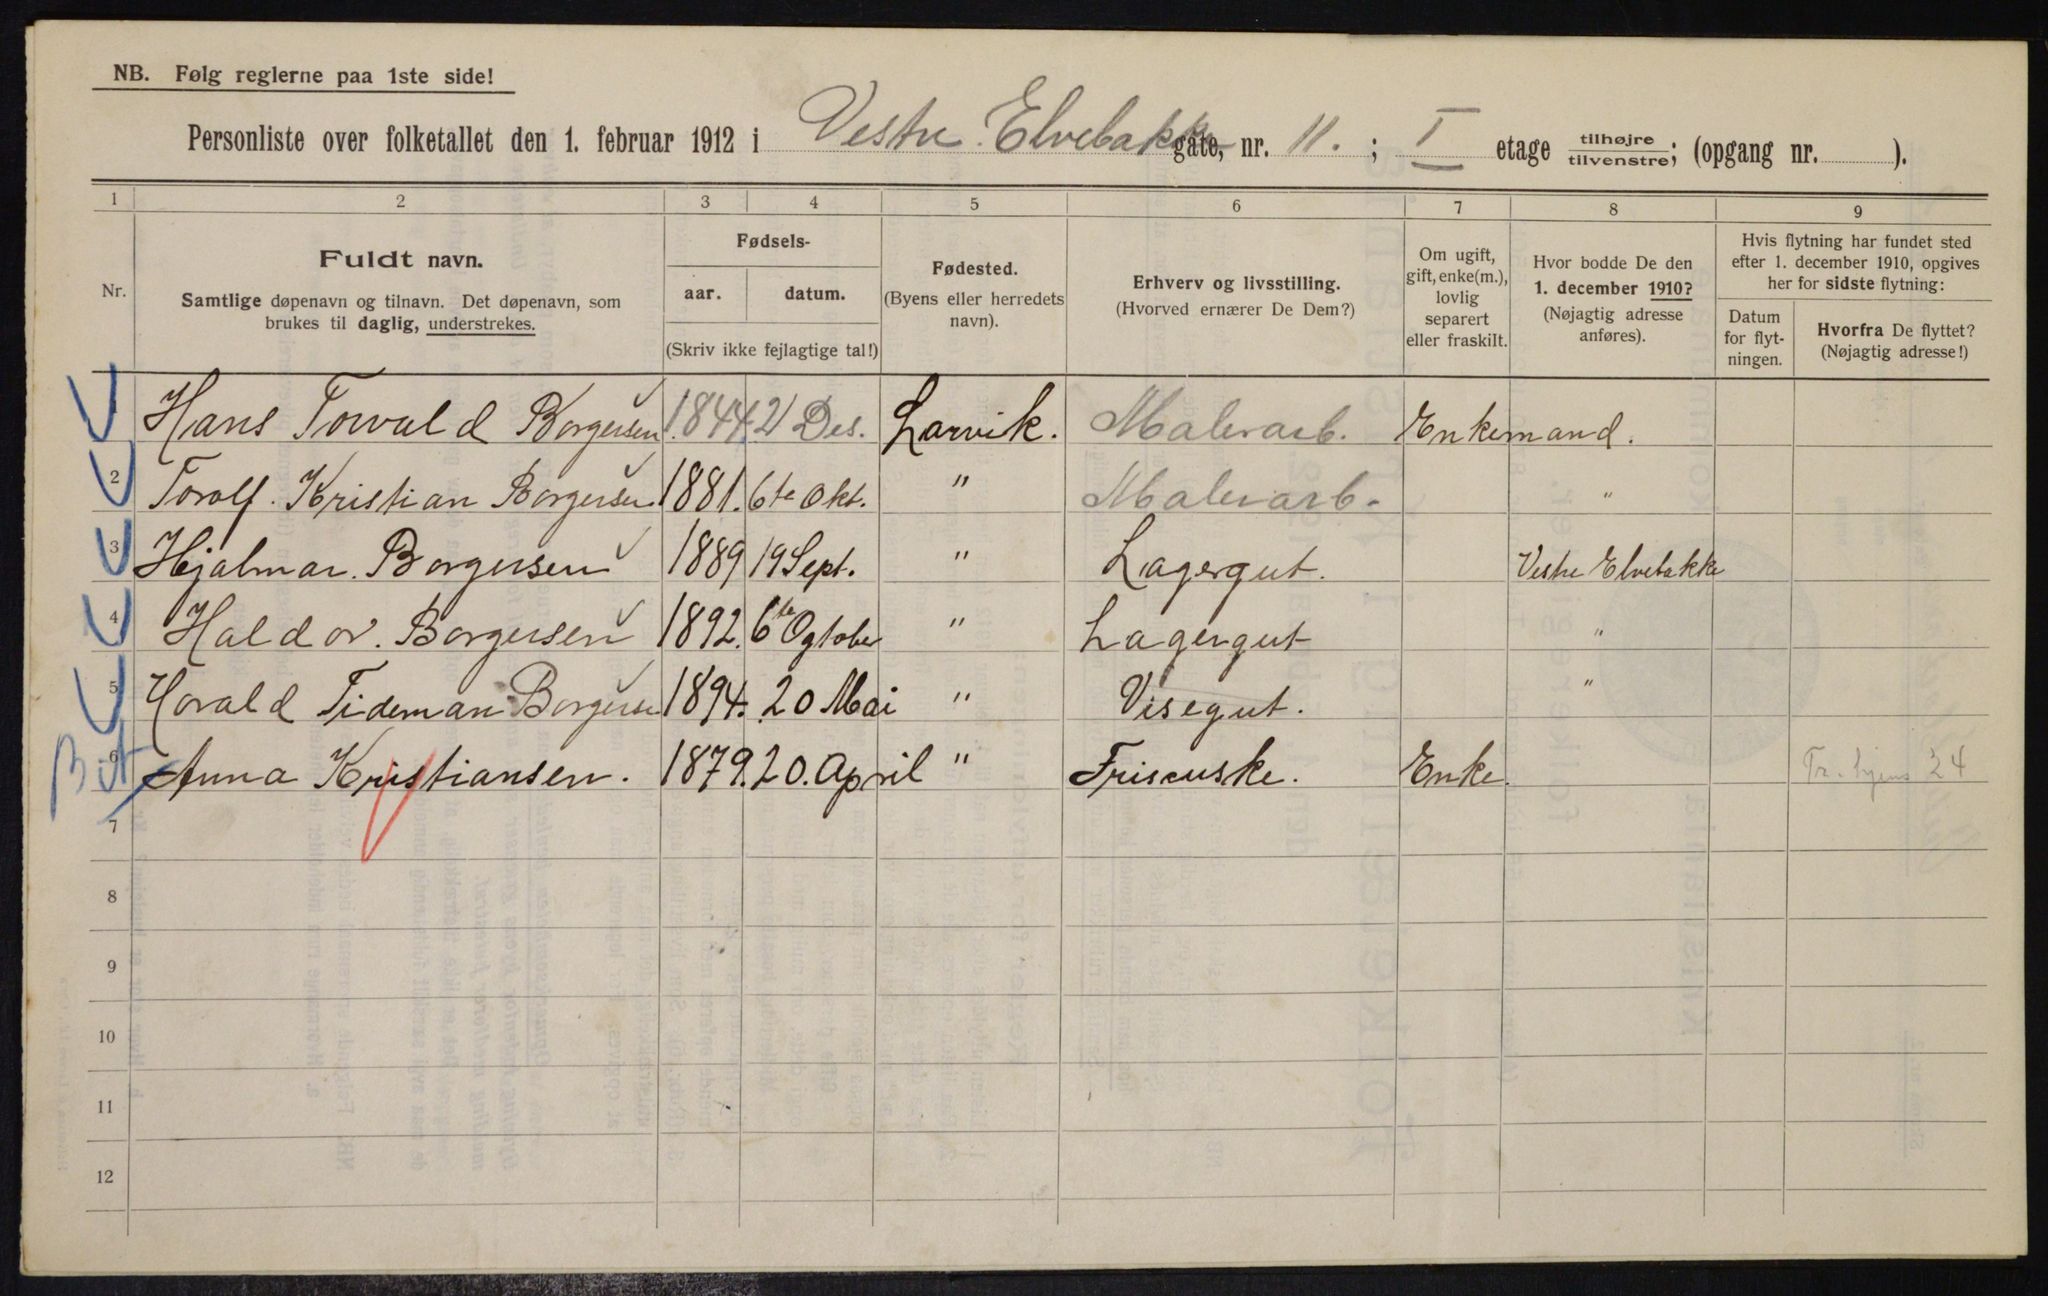 NB. Følg reglerne paa 1ste side!
Personliste over folketallet den 1. februar 1912 i Vestre Elvebakke gate, nr. 11. ; I etage tilhøjre tilvenstre; (opgang nr. ).
1 2 3 4 5 6 7 8 9
Nr.
Fuldt navn.
Samtlige døpenavn og tilnavn. Det døpenavn, som
brukes til daglig, understrekes.
Fødsels-
aar. datum.
(Skriv ikke fejlagtige tal!)
Fødested.
(Byens eller herredets
navn).
Erhverv og livsstilling.
(Hvorved ernærer De Dem?)
Om ugift,
gift, enke(m.),
lovlig
separert
eller fraskilt.
Hvor bodde De den
1. december 1910?
(Nøjagtig adresse
anføres).
Hvis flytning har fundet sted
efter 1. december 1910, opgives
her for sidste flytning:
Datum
for flyt-
ningen.
Hvorfra De flyttet?
(Nøjagtig adresse!)
Hans Torvald Borgersen 1844 21 Des. Larvik. Malerarb. Enkemand.
2 Torolf. Kristian Borgersen 1881. 6te Okt. " Malerarb. "
3 Hjalmar. Borgersen 1889 19 Sept. " Lagergut. Vestre Elvebakke
4 Haldor. Borgersen 1892. 6te Ogtober " Lagergut "
5 Harald Tideman Borgersen 1894. 20 Mai " Visegut. "
6 Anna Kristiansen. 1879. 20. April " Friseuske. Enke. 24
7
8
9
10
11
12